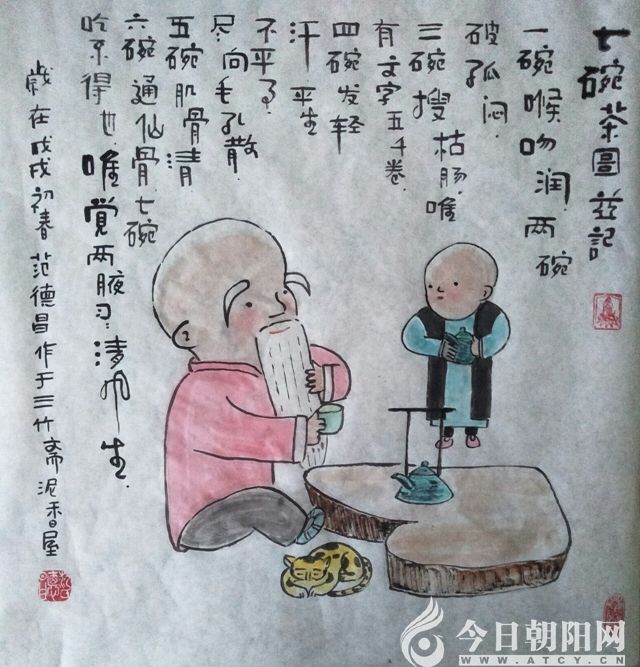 七碗茶圖兹記
一碗喉吻润.两碗
破孤闷.
三碗搜枯肠.唯
有文字五千卷.
四碗发轻
汗 平生
不平事
尽.向毛孔散.
五碗肌骨清
六碗通仙骨.七碗
吃不得也.唯覺两腋习习清风生.
歲在戊戌初春 范德昌作于三竹斋泥香屋
今日朝阳网
WWW.ATCY.CN